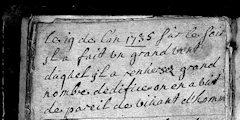 le 19 de Lan 1735 sur le soir
il a fait un grand vent
duquel il a renversez grand
nombre dedifice on en a but
de pareil de vivant dhomme